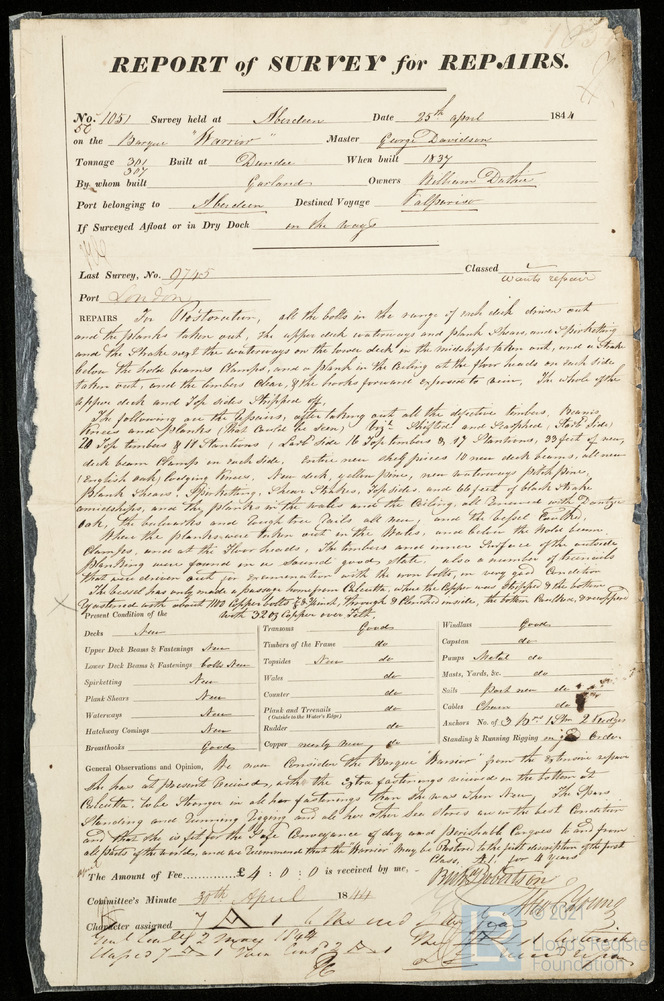 REPORT of SURVEY for REPAIRS.
No. 1051 Survey held at Aberdeen Date 25th April 1844
on the Barque "Warrior" Master George Davidson
Tonnage 301 Built at Dundee When built 1837
307
By whom built Garland Owners William Duthie
Port belonging to Aberdeen Destined Voyage Valparaiso
If Surveyed Afloat or in Dry Dock in the ways
Last Survey, No. 9745 Classed
wants repair
Port London
REPAIRS For Restoration, all the bolts in the range of each deck driven out
and the planks taken out, The upper deck waterways and plank Shears, and Spirketting
and the Strake next the waterways on the lower deck in the midships taken out, and a Strake
below the hold beams Clamps, and a plank in the Ceiling at the floor heads on each side
taken out, and the timbers Clear, & the hooks forward exposed to view, The whole of the
upper deck and Top sides Stripped off.
The following are the repairs, after taking out all the defective timbers, Beams,
Knees and planks (that could be seen) Viz. Shifted and Scarphed, Starb. Side
20 Top timbers & 18 Stantions, Larb. Side 16 Top timbers & 17 Stantions, 33 feet of new
deck beam Clamp on each Side, entire new Shelf pieces 10 new deck beams, all new
(English oak) Lodging Knees. New deck, yellow pine, new waterways pitch pine,
Plank Shears, Spirketting, Shear Strakes, Topsides, and 66 feet of black Strake
amidships, and the planks in the wales and the Ceiling, all renewed with Dantzic
Oak, the bulwarks and rough tree rails all new, and the vessel Caulked,
When the planks were taken out in the Wales, and below the Hold beam
Clamps, and at the Floor heads, The timbers and inner Surface of the outside
planking were found in a Sound good State, also a number of treenails
that were driven out for examination with the iron bolts, in very good Condition
The vessel has only made a passage home from Calcutta, where the Copper was Stripped & the bottom
fastened with about 1100 Copper bolts through & Clinched inside, the bottom Caulked, & recoppered
with 32 oz Copper over Felt.
Present Condition of the
Decks New
Upper Deck Beams & Fastenings New
Lower Deck Beams & Fastenings bolts New
Spirketting New
Plank-Shears New
Waterways New
Hatchway Comings New
Breasthooks Good
Transoms Good
Timbers of the Frame do
Topsides New do
Wales do
Counter do
Plank and Treenails do
(Outside to the Water's Edge)
Rudder do
Copper nearly new, do
Windlass Good
Capstan do
Pumps Metal do
Masts, Yards, &c. do
Sails Part new do
Cables Chain do
Anchors No. of 3 Brs
Standing & Running Rigging in good Order
General Observations and Opinion, We now Consider the Barque "Warrior" from the extensive repairs
She has at present received, with the extra fastenings received in the bottom at
Calcutta, to be Stronger in all her fastenings than She was when New, The Spars
Standing and Running rigging and all her other Sea Stores are in the best Condition
and that she is fit for the Safe Conveyance of dry and perishable Cargoes to and from
all parts of the world, and we recommend that the Warrior May be Restored to the first description of the first
Class, A1 for 4 years
The Amount of Fee £ 4 : 0 : 0 is received by me,
Robertson
Committee's Minute 30th April 1844
Character assigned
© 2021
Lloyd's Register
Foundation